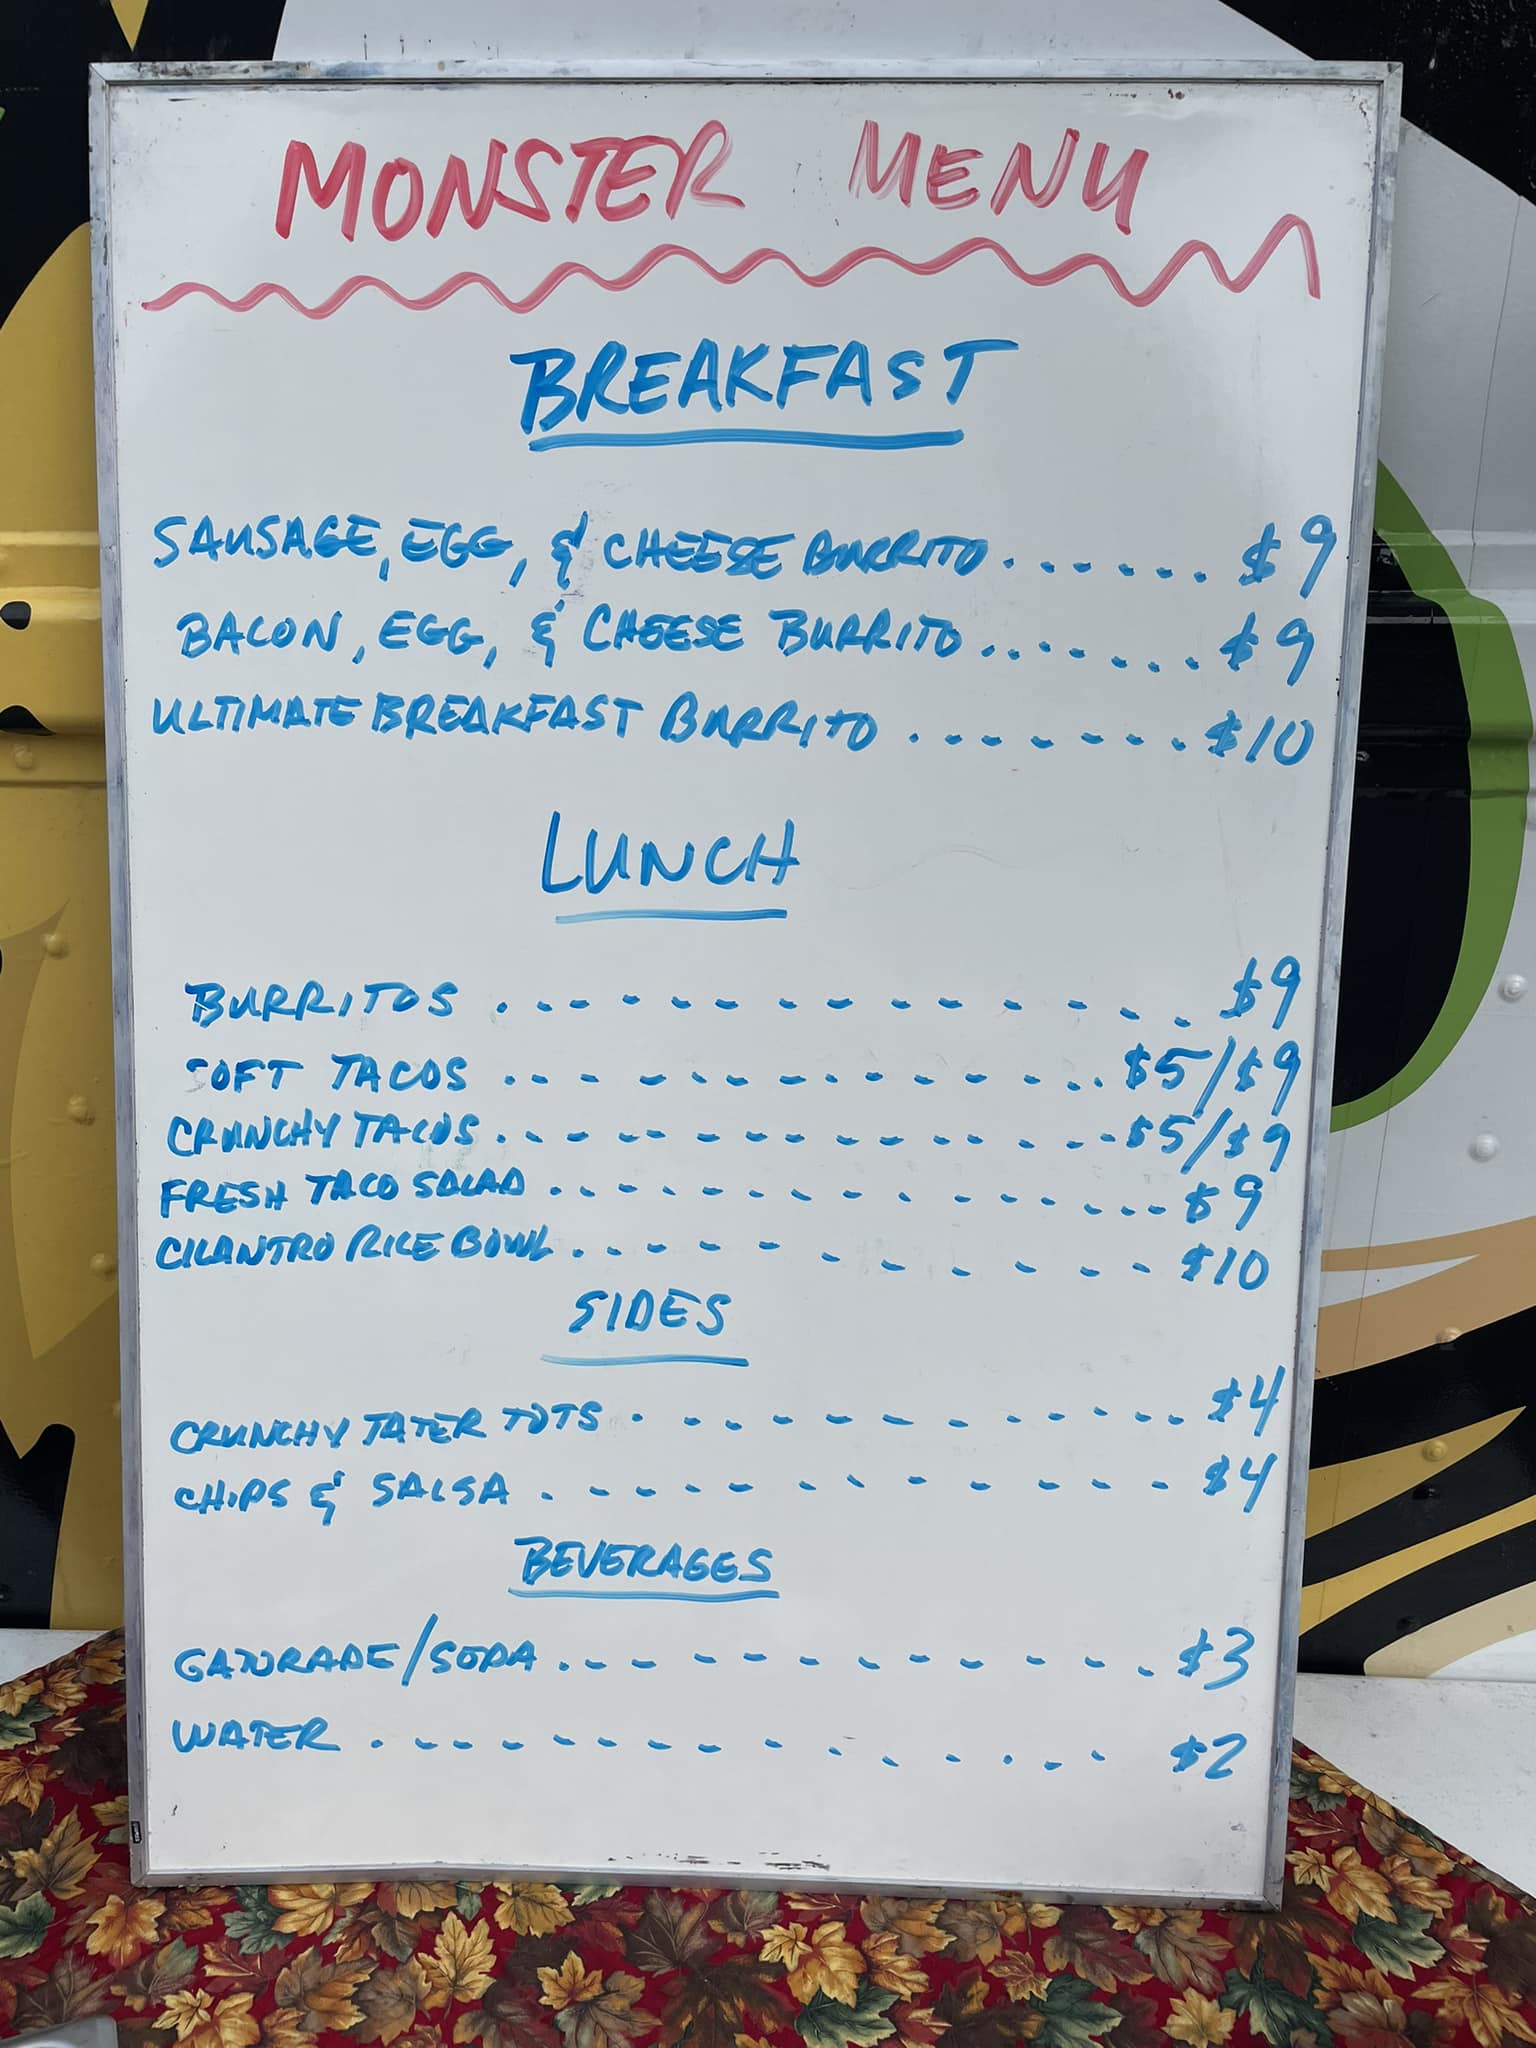 MONSTER MENU
BREAKFAST
SAUSAGE, EGG, & CHEESE BURRITO ...... $9
BACON, EGG, & CHEESE BURRITO ....... $9
ULTIMATE BREAKFAST BURRITO ........ $10
LUNCH
BURRITOS .............. $9
SOFT TACOS .............. $5/$9
CRUNCHY TACOS .............. $5/$9
FRESH TACO SALAD .............. $9
CILANTRO RICE BOWL .......... $10
SIDES
CRUNCHY TATER TOTS ............ $4
CHIPS & SALSA ............ $4
BEVERAGES
GATORADE/SODA ............. $3
WATER ............. $2